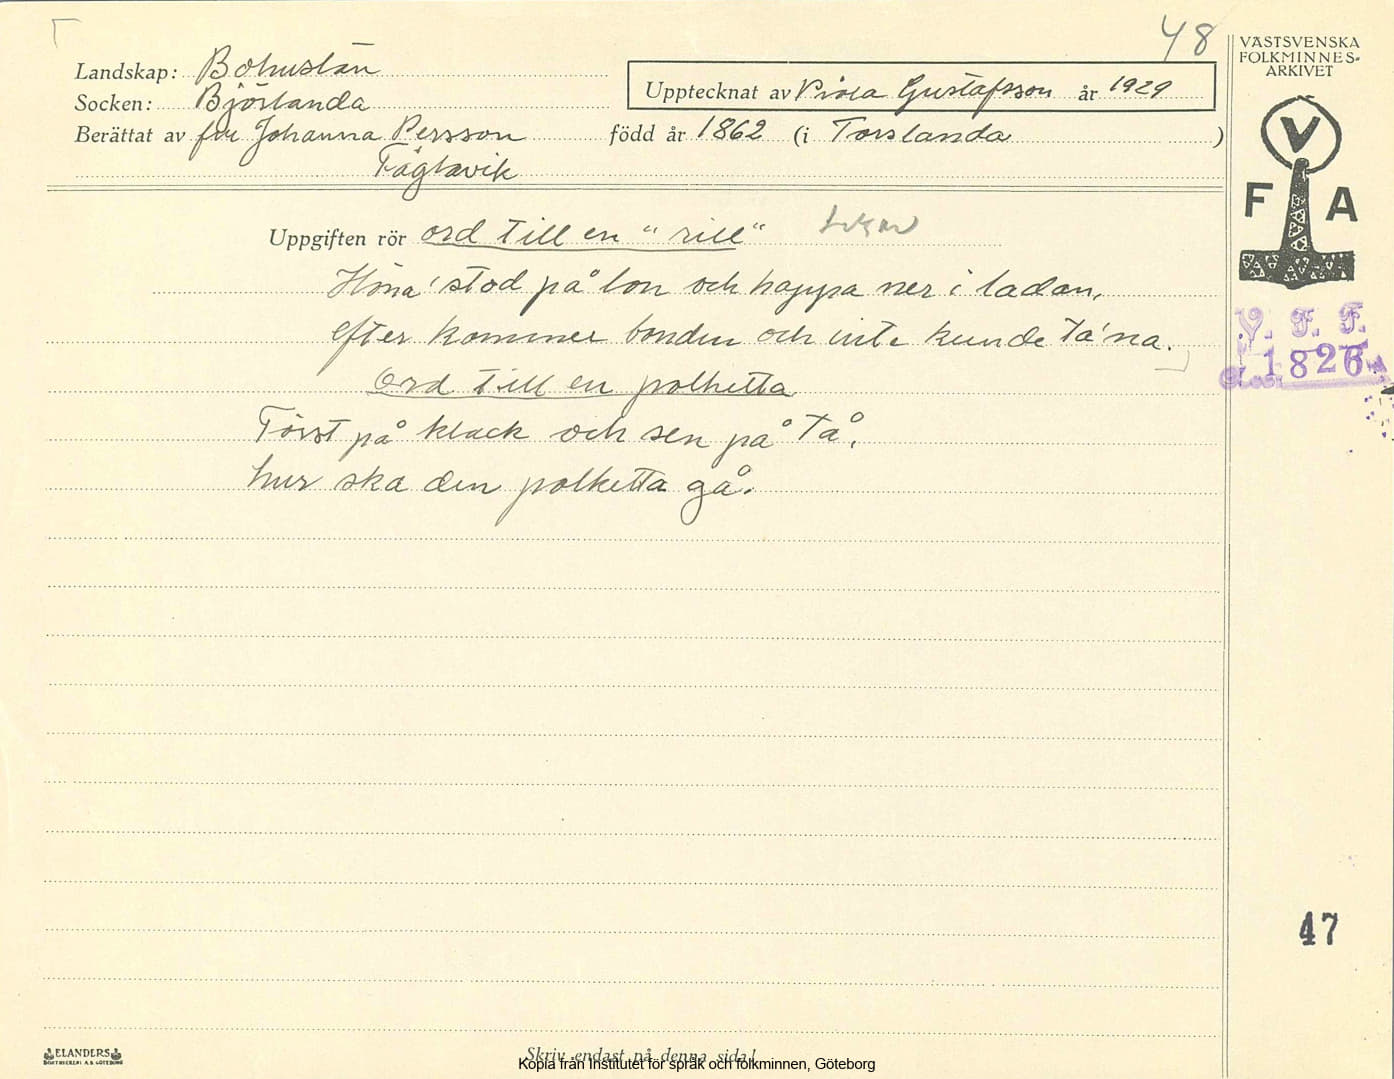 48
VÄSTSVENSKA
FOLKMINNES-
ARKIVET
Landskap: Bohuslän
Upptecknat av Viola Gustafsson år 1929
Socken: Björlanda
Berättat av fru Johanna Persson född år 1862 (i Torslanda )
Fåglavik
V
F A
Uppgiften rör ord till en "rill"
Höna' stod på lon och hoppa ner i ladan,
efter kommer bonden och inte kunde ta'na.
V. F. F.
1826
Ord till en polketta
Först på klack och sen på tå,
hur ska den polketta gå.
47
ELANDERS
BOKTRYCKERI A.B. GÖTEBORG
Skriv endast på denna sida!
Kopia från Institutet för språk och folkminnen, Göteborg